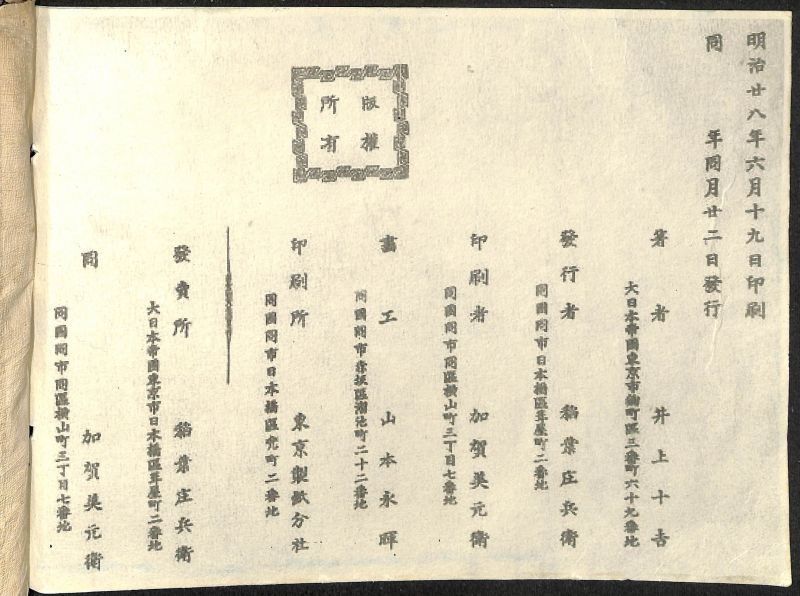 明治廿八年六月十九日印刷
同　年同月廿二日發行
版權
所有
著者　井上十吉
大日本帝國東京市麹町區三番町六十九番地
發行者　稲葉庄兵衛
同國同市日本橋區葺屋町二番地
印刷者　加賀美元衛
同國同市同區横山町三丁目七番地
畫工　山本永暉
同國同市赤坂區溜池町二十二番地
印刷所　東京製紙分社
同國同市日本橋區兜町二番地
發賣所　稲葉庄兵衛
大日本帝國東京市日本橋區葺屋町二番地
同　加賀美元衛
同國同市同區横山町三丁目七番地